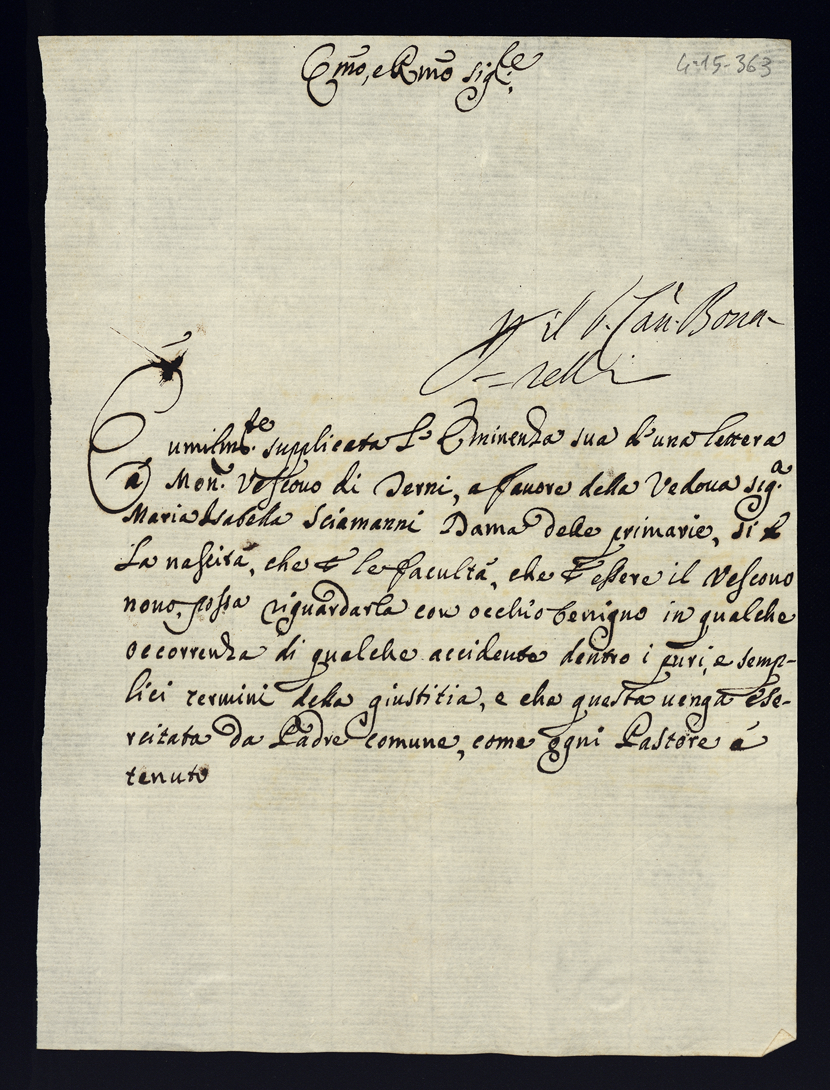 Emo, e Rmo sigre.
4-15-363
P il S. Can. Bona-
=relli
È umilmte. supplicata l' Eminenza sua d'una lettera
a Mon. Vescovo di Terni, a favore della Vedova sigra.
Maria Isabella Sciamanni Dama delle primarie, sì p
la nascita, che p le facultà, che p essere il Vescovo
novo, possa riguardarla con occhio benigno in qualche
occorrenza di qualche accidente dentro i puri, e semp-
lici termini della giustitia, e che questa venga ese-
rcitata da Padre comune, come ogni Pastore é
tenuto